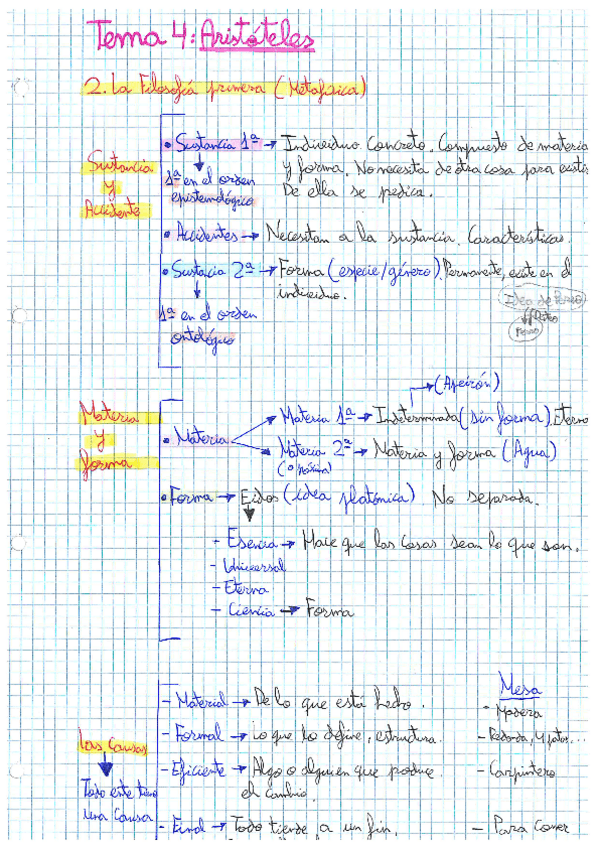 Tema 4: Aristóteles
2. La Filosofía primera (Metafísica)
Sustancia
y
Accidente
• Sustancia 1ª → Individuo Concreto. Compuesto de materia
y forma. No necesita de otra cosa para existir
De ella se predica.
1ª en el orden
epistemológico
• Accidentes → Necesitan a la sustancia. Características.
• Sustacia 2ª → Forma (especie/género). Permanente, existe en el
individuo.
1ª en el orden
ontológico
Idea de Perro
Perro
Materia
y
forma
(Apeirón)
• Materia
Materia 1ª → Indeterminada (sin forma). Eterna
Materia 2ª → Materia y forma (Agua)
(o próxima)
• Forma → Eidos (idea platónica) No separada.
- Esencia → Hace que las cosas sean lo que son.
- Universal
- Eterna
- Ciencia → Forma
Las Causas
Todo ente tiene
una Causa
Mesa
- Material → De lo que está hecho.
- Madera
- Formal → Lo que lo define, estructura.
- Redonda, 4 patas...
- Eficiente → Algo o alguien que produce
el cambio.
- Carpintero
- Final → Todo tiende a un fin.
- Para Comer